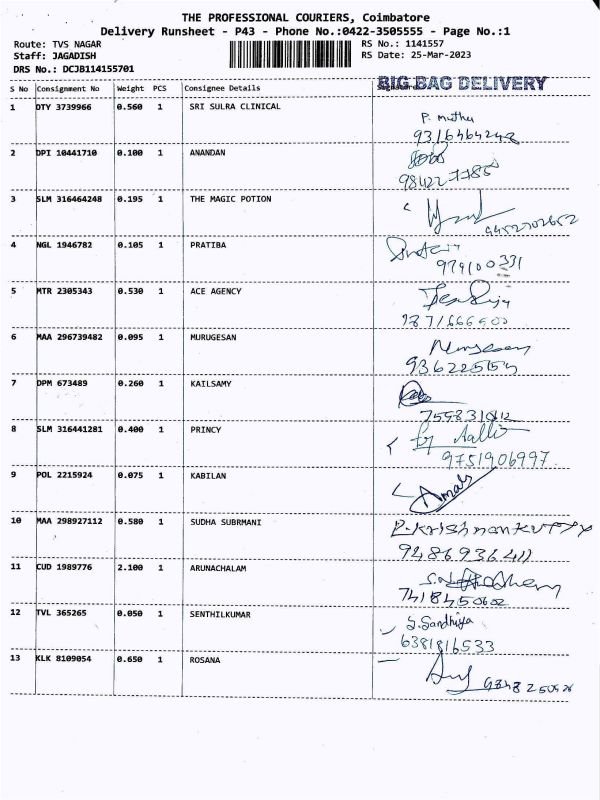 THE PROFESSIONAL COURIERS, Coimbatore
Delivery Runsheet - P43 - Phone No.:0422-3505555 - Page No.:1
Route: TVS NAGAR
RS No.: 1141557
Staff: JAGADISH
RS Date: 25-Mar-2023
DRS No.: DCJB114155701
S No Consignment No Weight PCS Consignee Details BIG BAG DELIVERY
1 DTY 3739966 0.560 1 SRI SULRA CLINICAL P. Muthu
9316464248
2 DPI 10441710 0.100 1 ANANDAN
3 SLM 316464248 0.195 1 THE MAGIC POTION
9452702652
4 NGL 1946782 0.105 1 PRATIBA
979100331
5 MTR 2305343 0.530 1 ACE AGENCY
6 MAA 296739482 0.095 1 MURUGESAN Murugesan
7 DPM 673489 0.260 1 KAILSAMY
8 SLM 316441281 0.400 1 PRINCY
9751906997
9 POL 2215924 0.075 1 KABILAN Amals
10 MAA 298927112 0.580 1 SUDHA SUBRMANI P.Krishnankutty
9486936411
11 CUD 1989776 2.100 1 ARUNACHALAM
7418450602
12 TVL 365265 0.050 1 SENTHILKUMAR S. Sandhiya
6381816533
13 KLK 8109054 0.650 1 ROSANA